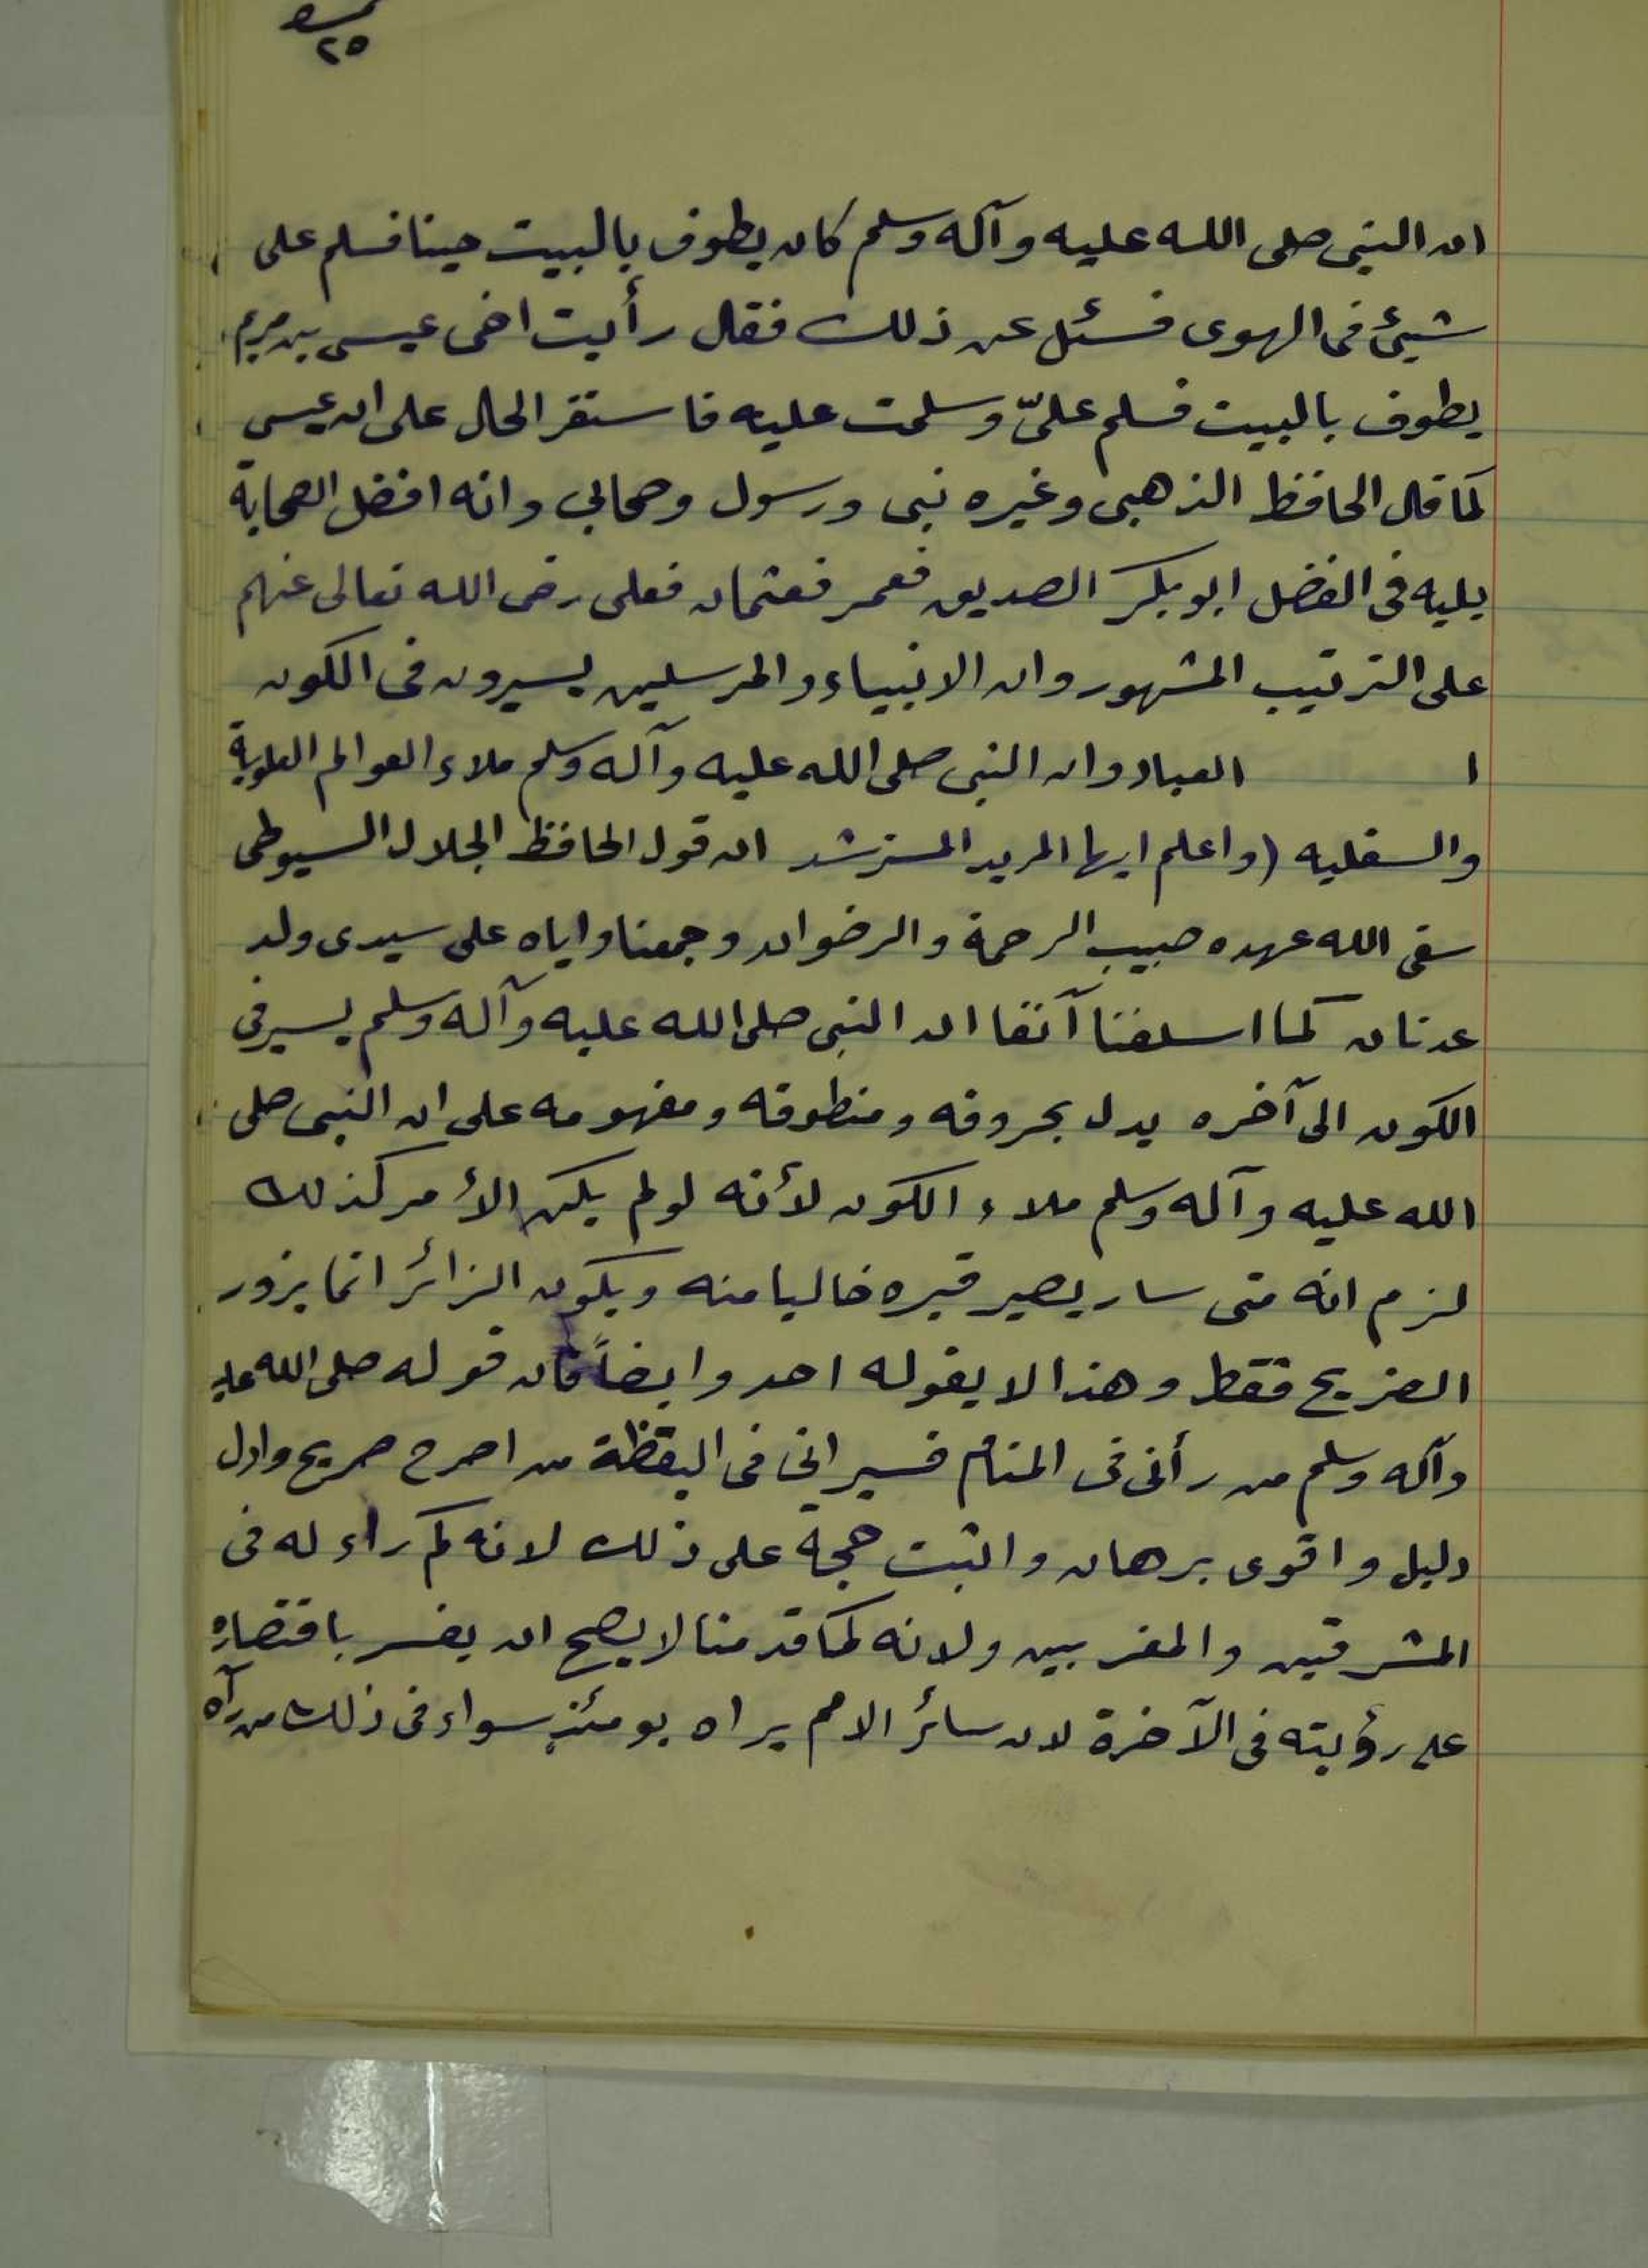 ٢٥
ان النبى صلى الله عليه وآله وسلم كان يطوف بالبيت حينا فسلم على
شيئ فى الهوى فسئل عن ذلك فقال رأيت اخى عيسى بن مريم
يطوف بالبيت فسلم علىّ وسلمت عليه فاستقر الحال على ان عيسى
كما قال الحافظ الذهبى وغيره نبى ورسول وصحابى وانه افضل الصحابة
يليه فى الفضل ابو بكر الصديق فعمر فعثمان فعلى رضى الله تعالى عنهم
على الترتيب المشهور وان الانبياء والمرسلين يسيرون فى الكون
ا العباد وان النبى صلى الله عليه وآله وسلم ملاء العوالم العلوية
والسفليه (واعلم ايها المريد المسترشد ان قول الحافظ الجلال السيوطى
سقى الله عهده صبيب الرحمة والرضوان وجمعنا واياه على سيدى ولد
عدنان كما اسلفنا آنفا ان النبى صلى الله عليه وآله وسلم يسير فى
الكون الى آخره يدل بحروفه ومنطوقه ومفهومه على ان النبى صلى
الله عليه وآله وسلم ملاء الكون لأنه لو لم يكن الأمر كذلك
لزم انه متى سار يصير قبره خاليا منه ويكون الزائر انما يزور
الضريح فقط وهذا لا يقوله احد وايضاً فان قوله صلى الله عليه
وآله وسلم من رأنى فى المنام فسيرانى فى اليقظة من اصرح صريح وادل
دليل واقوى برهان واثبت حجة على ذلك لانه كم راء له فى
المشرقين والمغربين ولانه كما قدمنا لا يصح ان يفسر باقتصاره
على رؤيته فى الآخرة لان سائر الامم يراه يومئذٍ سواء فى ذلك من رآه